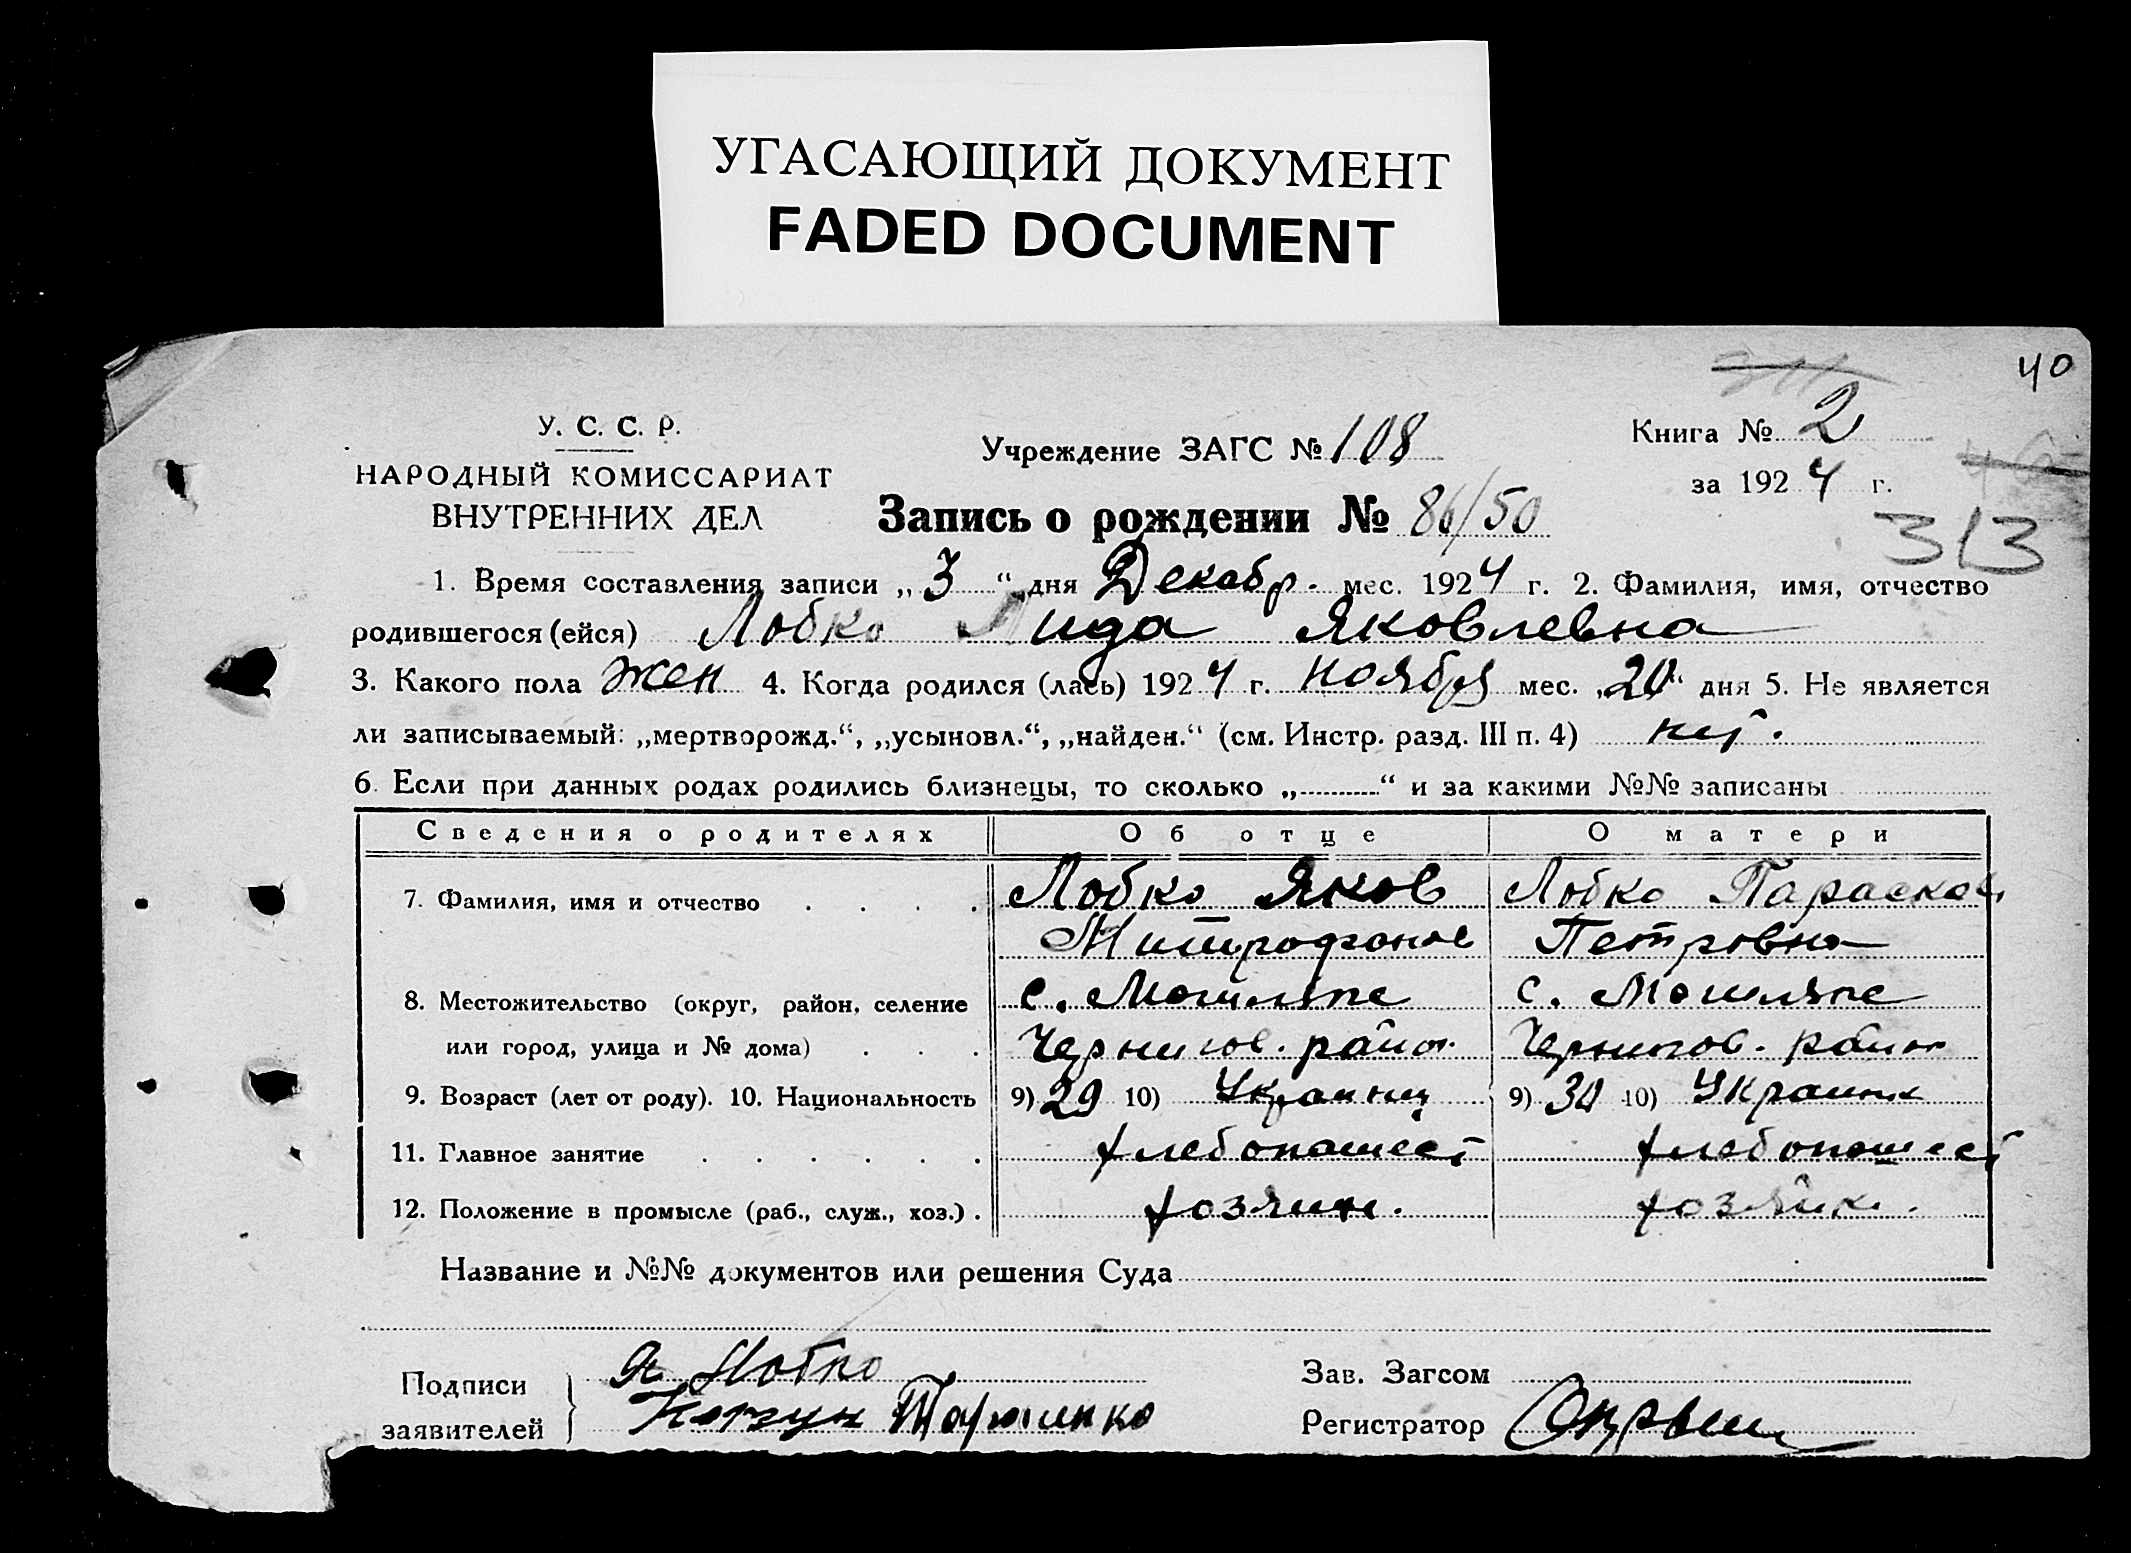 УГАСАЮЩИЙ ДОКУМЕНТ
FADED DOCUMENT
40
У. С. С. Р.
НАРОДНЫЙ КОМИССАРИАТ
ВНУТРЕННИХ ДЕЛ
Учреждение ЗАГС № 108
Книга № 2
за 1924 г.
313
Запись о рождении № 86/50
1. Время составления записи „3“ дня Декабр. мес. 1924 г. 2. Фамилия, имя, отчество
родившегося (ейся) Лобко Лида Яковлевна
3. Какого пола жен 4. Когда родился (лась) 1924 г. ноября мес. „20“ дня 5. Не является
ли записываемый: „мертворожд.“, „усыновл.“, „найден.“ (см. Инстр. разд. III п. 4) нет.
6. Если при данных родах родились близнецы, то сколько „...........“ и за какими №№ записаны
Сведения о родителях Об отце О матери
7. Фамилия, имя и отчество . . . . Лобко Яков Лобко Параскев
Митрофанов Петровна
8. Местожительство (округ, район, селение с.
с.
или город, улица и № дома) . . . Чернигов. район Чернигов. район
9. Возраст (лет от роду). 10. Национальность 9) 29 10) Украинц 9) 30 10) Украинк
11. Главное занятие . . . . . . хлебопашест хлебопашест
12. Положение в промысле (раб., служ., хоз.) . хозяин. хозяйк.
Название и №№ документов или решения Суда
Подписи
заявителей
Я Лобко
Зав. Загсом
Регистратор